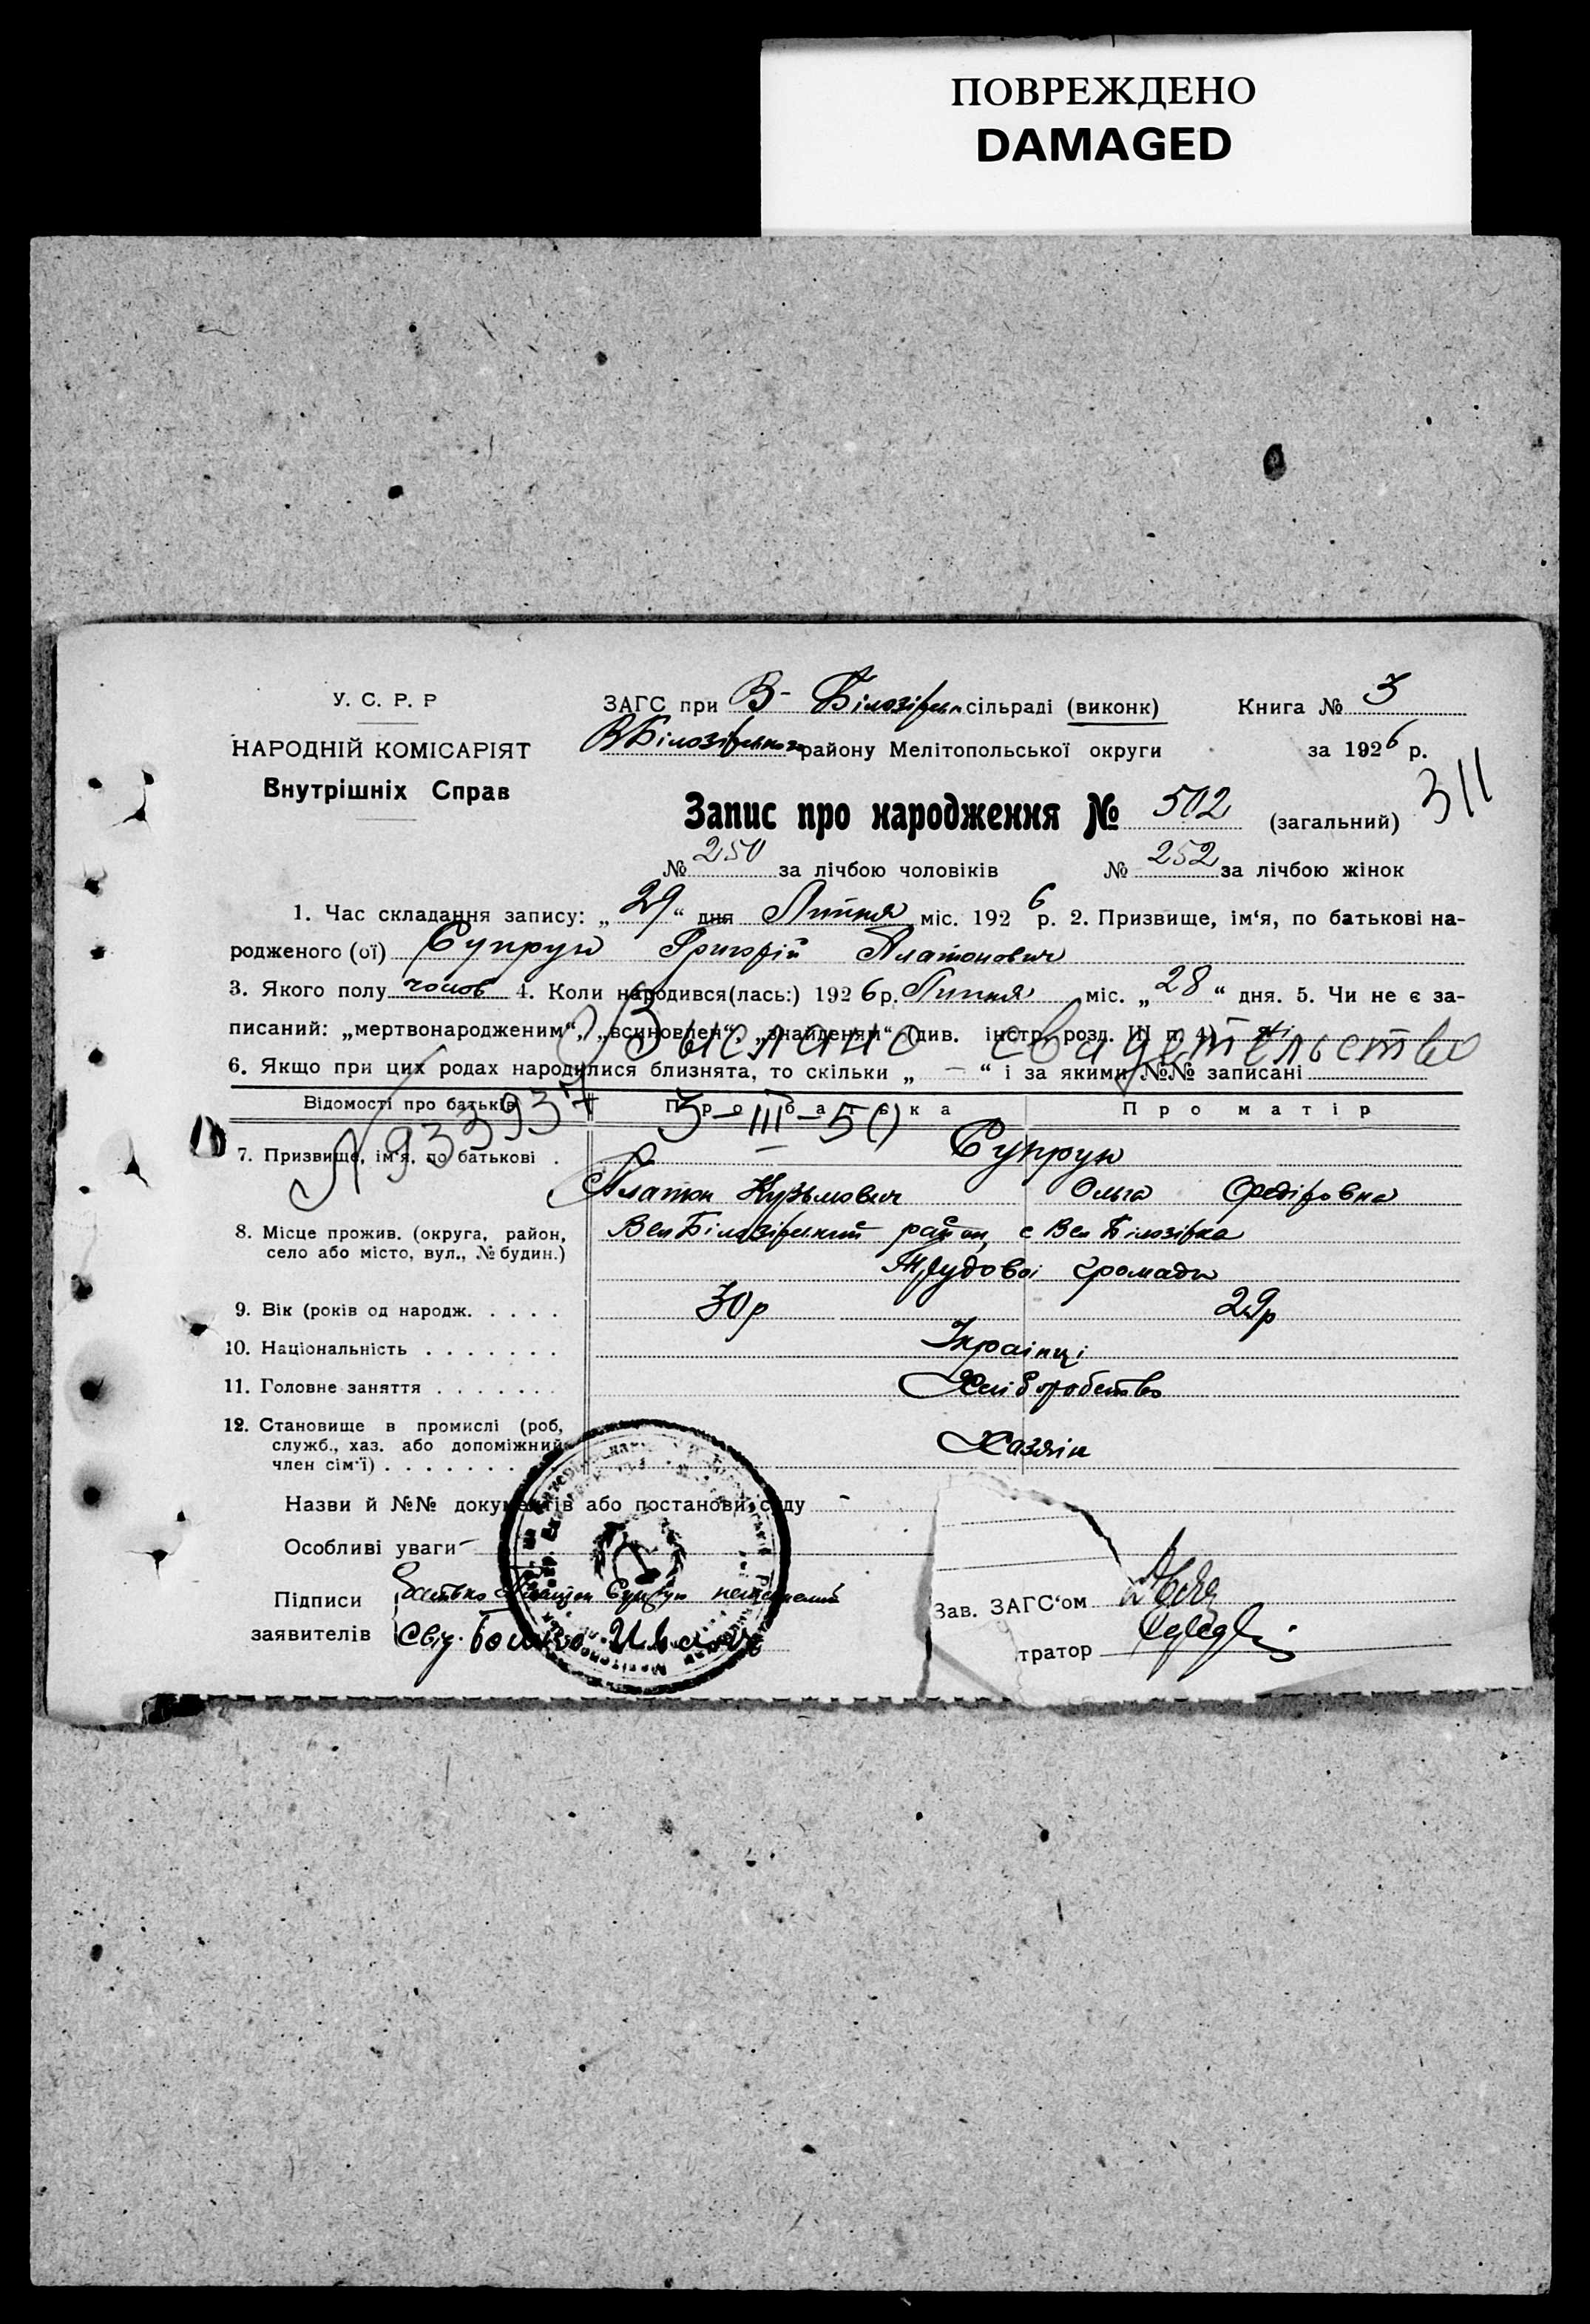 ПОВРЕЖДЕНО
DAMAGED
У. С. Р. Р
НАРОДНІЙ КОМІСАРІЯТ
Внутрішніх Справ
ЗАГС при В- Білозірськ сільраді (виконк)
Книга № 3
ВБілозірського району Мелітопольської округи
за 1926 р.
311
Запис про народження № 502 (загальний)
№ 250 за лічбою чоловіків № 252 за лічбою жінок
1. Час складання запису: „29“ дня Липня міс. 1926 р. 2. Призвище, ім‘я, по батькові на-
родженого (ої) Супрун Григорій Платонович
3. Якого полу чолов 4. Коли народився(лась:) 1926 р. Липня міс. „28“ дня. 5. Чи не є за-
писаний: „мертвонародженим“, „всиновлен“, „знайденям“ (див. інстр. розд. III п. 4) ні
Выслано свидетельство
6. Якщо при цих родах народилися близнята, то скільки „ — “ і за якими №№ записані
№ 933937 3-III-50
Відомості про батьків Про батька Про матір
7. Призвище, ім‘я, по батькові . Супрун
Платон Кузьмович Ольга Федіровна
8. Місце прожив. (округа, район,
село або місто, вул., № будин.)
Вел Білозірський район, с Вел Білозірка
Трудової громади
9. Вік (років од народж. . . . . 30р 29р
10. Національність . . . . . . . Українці
11. Головне заняття . . . . . . . Хліборобство
12. Становище в промислі (роб,
служб., хаз. або допоміжний
член сім‘ї) . . . . . . . Хазяїн
Назви й №№ документів або постанови суду -
Особливі уваги -
Підписи
заявителів
Батько Платон Супрун неписьмений
Свід.
Зав. ЗАГС‘ом
тратор